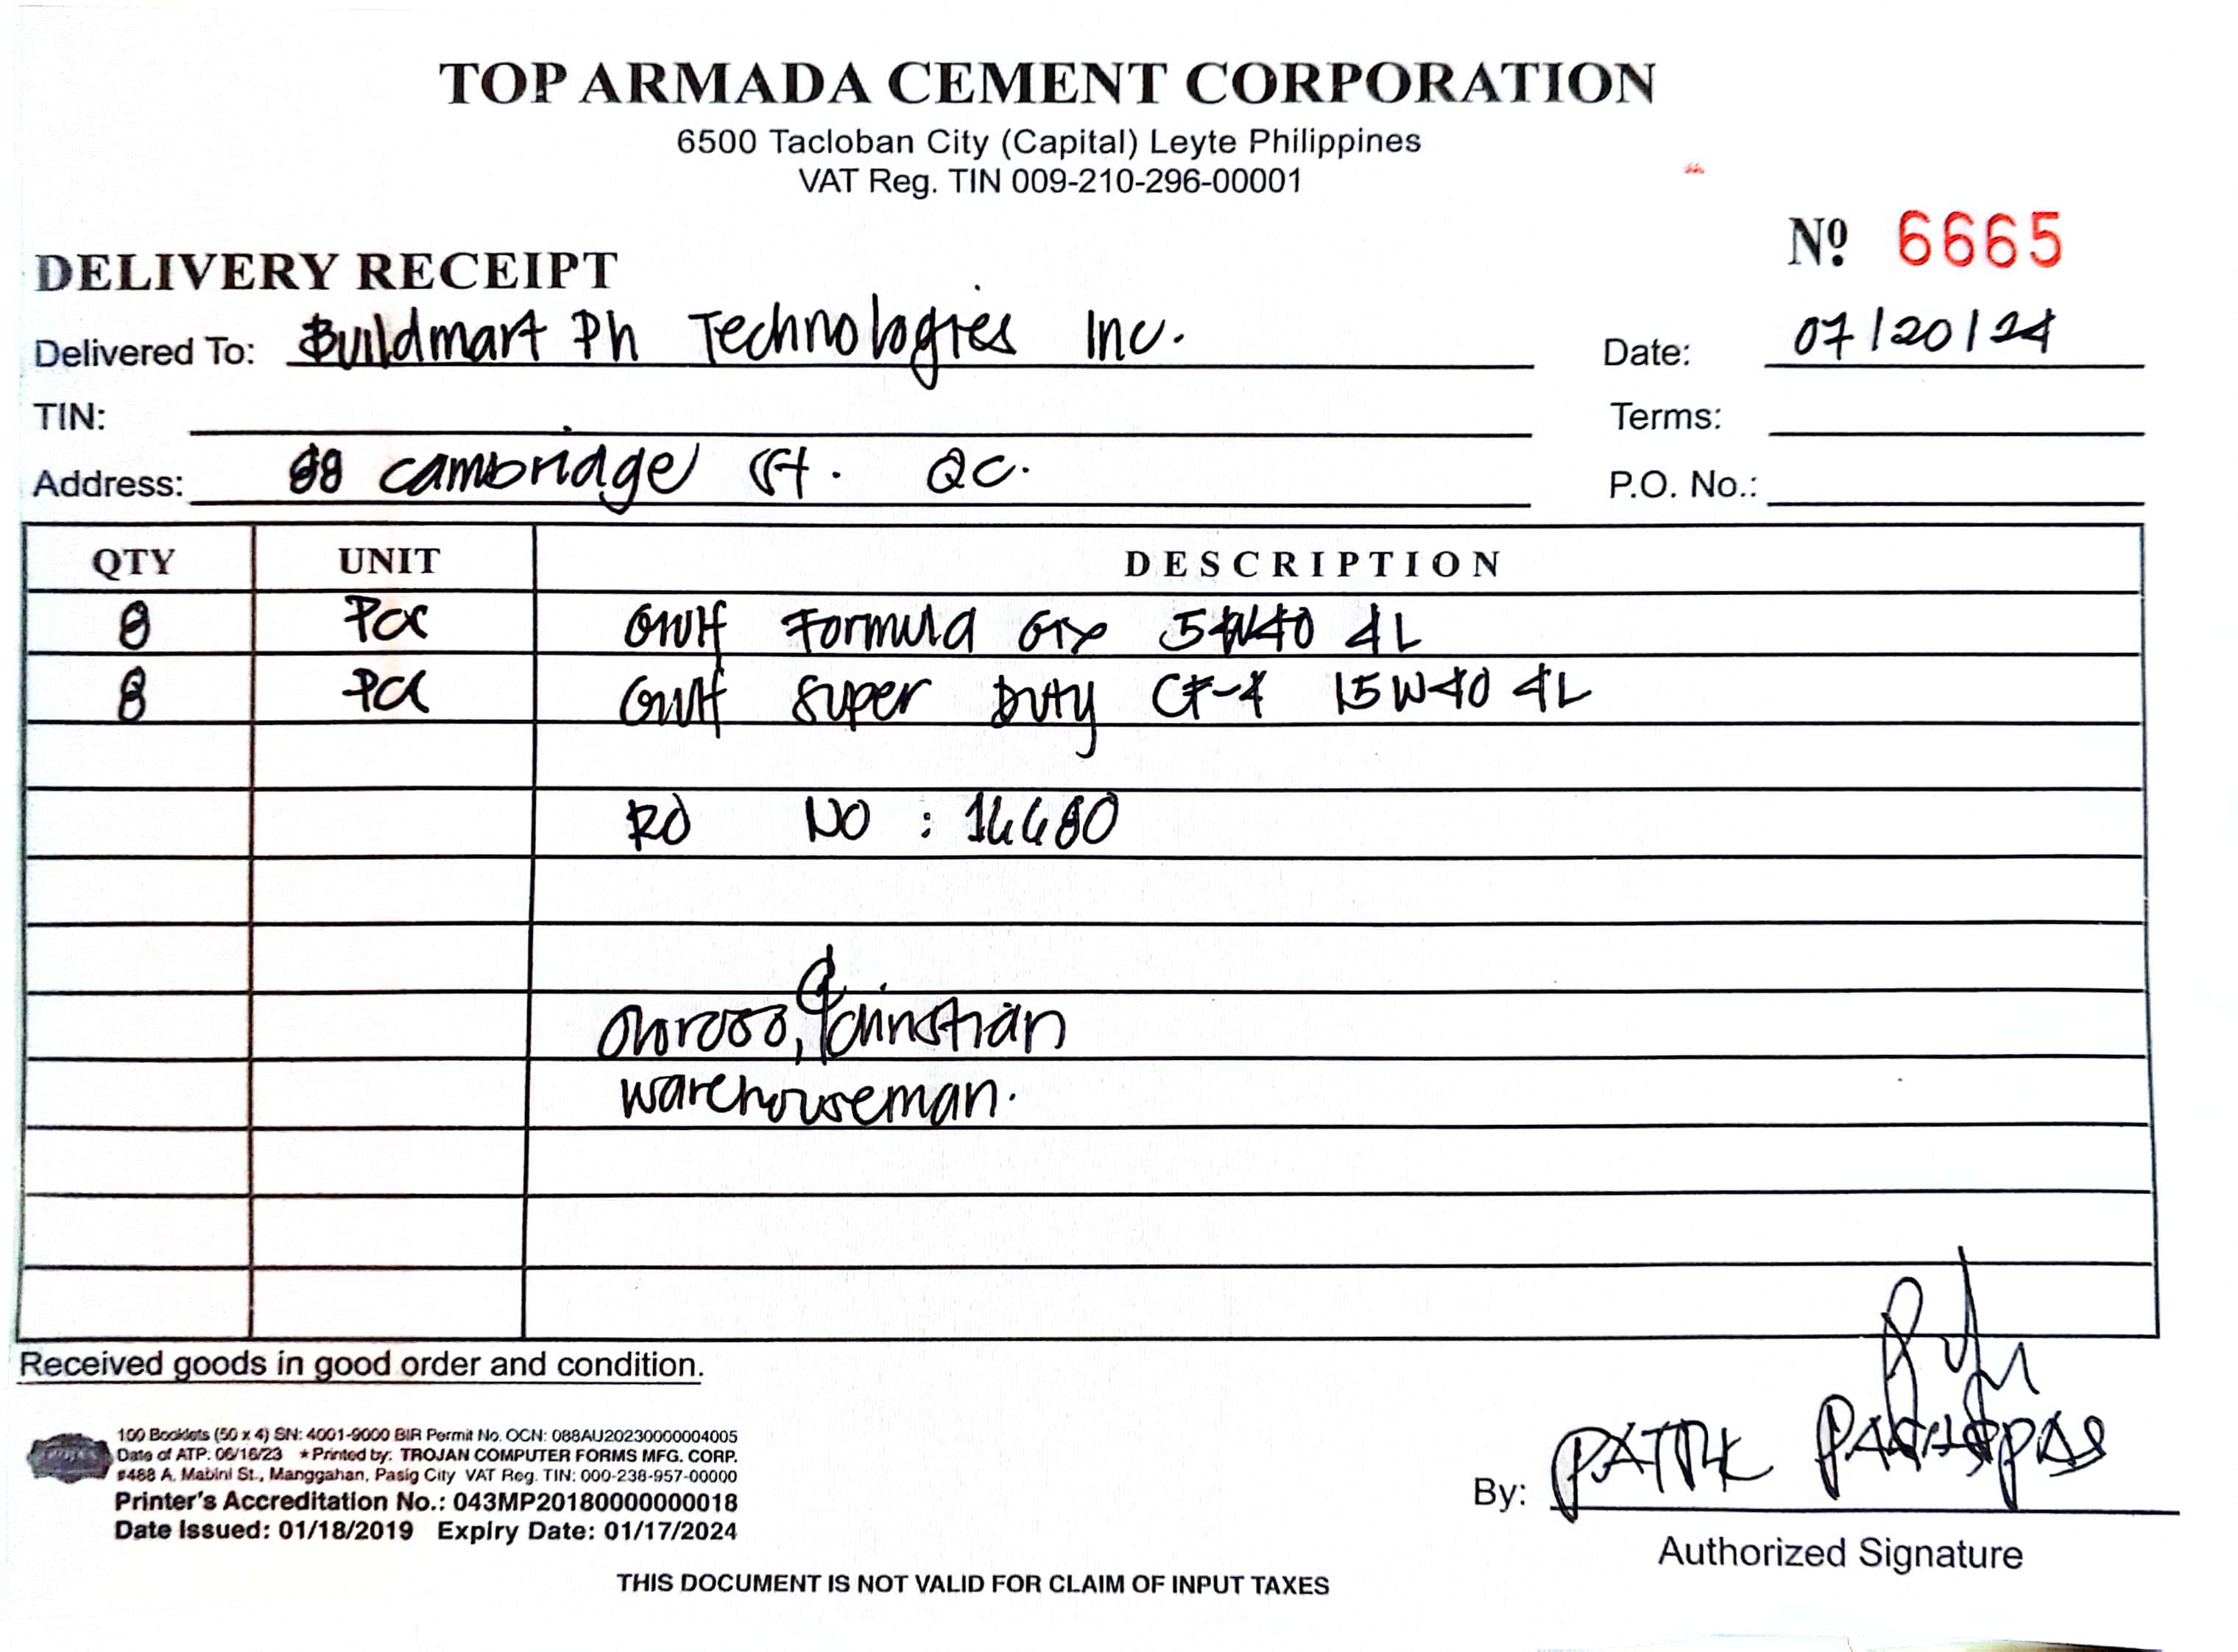 TOP ARMADA CEMENT CORPORATION
6500 Tacloban City (Capital) Leyte Philippines
VAT Reg. TIN 009-210-296-00001
Nº 6665
DELIVERY RECEIPT
Delivered To: Buildmart Ph Technologies Inc. Date: 07/20/24
TIN: Terms:
Address: 88 Cambridge St. QC. P.O. No.:
QTY UNIT DESCRIPTION
8 Pcs Gulf Formula GTX 5W40 4L
8 Pcs Gulf Super Duty CF-4 15W40 4L
RO NO :
Christian
warehouseman.
Received goods in good order and condition.
100 Booklets (50 x 4) SN: 4001-9000 BIR Permit No. OCN: 088AU20230000004005
Date of ATP: 06/16/23 ★Printed by: TROJAN COMPUTER FORMS MFG. CORP.
#488 A. Mabini St., Manggahan, Pasig City VAT Reg. TIN: 000-238-957-00000
Printer's Accreditation No.: 043MP20180000000018
Date Issued: 01/18/2019 Expiry Date: 01/17/2024
By:
Authorized Signature
THIS DOCUMENT IS NOT VALID FOR CLAIM OF INPUT TAXES